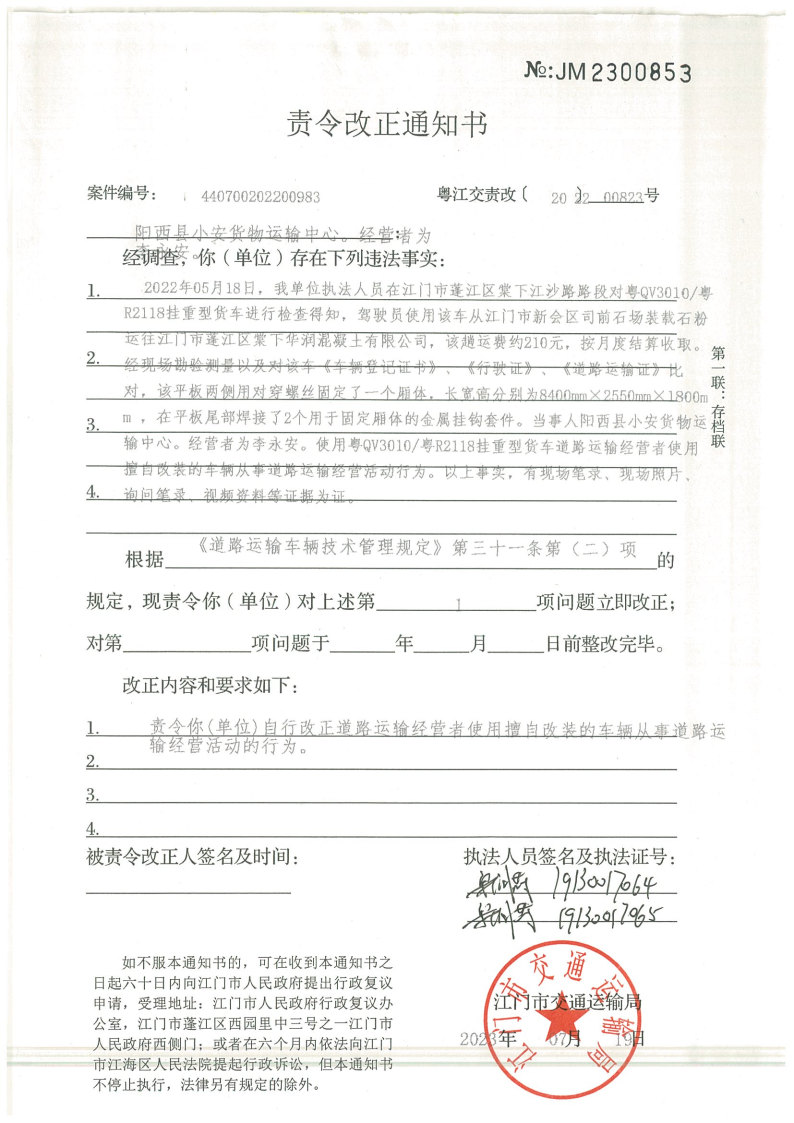 №:JM2300853
责令改正通知书
案件编号： 440700202200983 粤江交责改〔2022〕00823号
阳西县小安货物运输中心。经营者为
李永安。
经调查，你（单位）存在下列违法事实：
1. 2022年05月18日，我单位执法人员在江门市蓬江区棠下江沙路路段对粤QV3010/粤
R2118挂重型货车进行检查得知，驾驶员使用该车从江门市新会区司前石场装载石粉
运往江门市蓬江区棠下华润混凝土有限公司，该趟运费约210元，按月度结算收取。
2. 经现场勘验测量以及对该车《车辆登记证书》、《行驶证》、《道路运输证》比
对，该平板两侧用对穿螺丝固定了一个厢体，长宽高分别为8400mm×2550mm×1800m
3. m ，在平板尾部焊接了2个用于固定厢体的金属挂钩套件。当事人阳西县小安货物运
输中心。经营者为李永安。使用粤QV3010/粤R2118挂重型货车道路运输经营者使用
擅自改装的车辆从事道路运输经营活动行为。以上事实，有现场笔录、现场照片、
4. 询问笔录、视频资料等证据为证。
第一联：存档联
根据《道路运输车辆技术管理规定》第三十一条第（二）项的
规定，现责令你（单位）对上述第 1 项问题立即改正；
对第 项问题于 年 月 日前整改完毕。
改正内容和要求如下：
1. 责令你(单位)自行改正道路运输经营者使用擅自改装的车辆从事道路运
输经营活动的行为。
2.
3.
4.
被责令改正人签名及时间： 执法人员签名及执法证号：
19130017064
19130017065
如不服本通知书的，可在收到本通知书之
日起六十日内向江门市人民政府提出行政复议
申请，受理地址：江门市人民政府行政复议办
公室，江门市蓬江区西园里中三号之一江门市
人民政府西侧门；或者在六个月内依法向江门
市江海区人民法院提起行政诉讼，但本通知书
不停止执行，法律另有规定的除外。
江门市交通运输局
江门市交通运输局
2023年 07月 19日